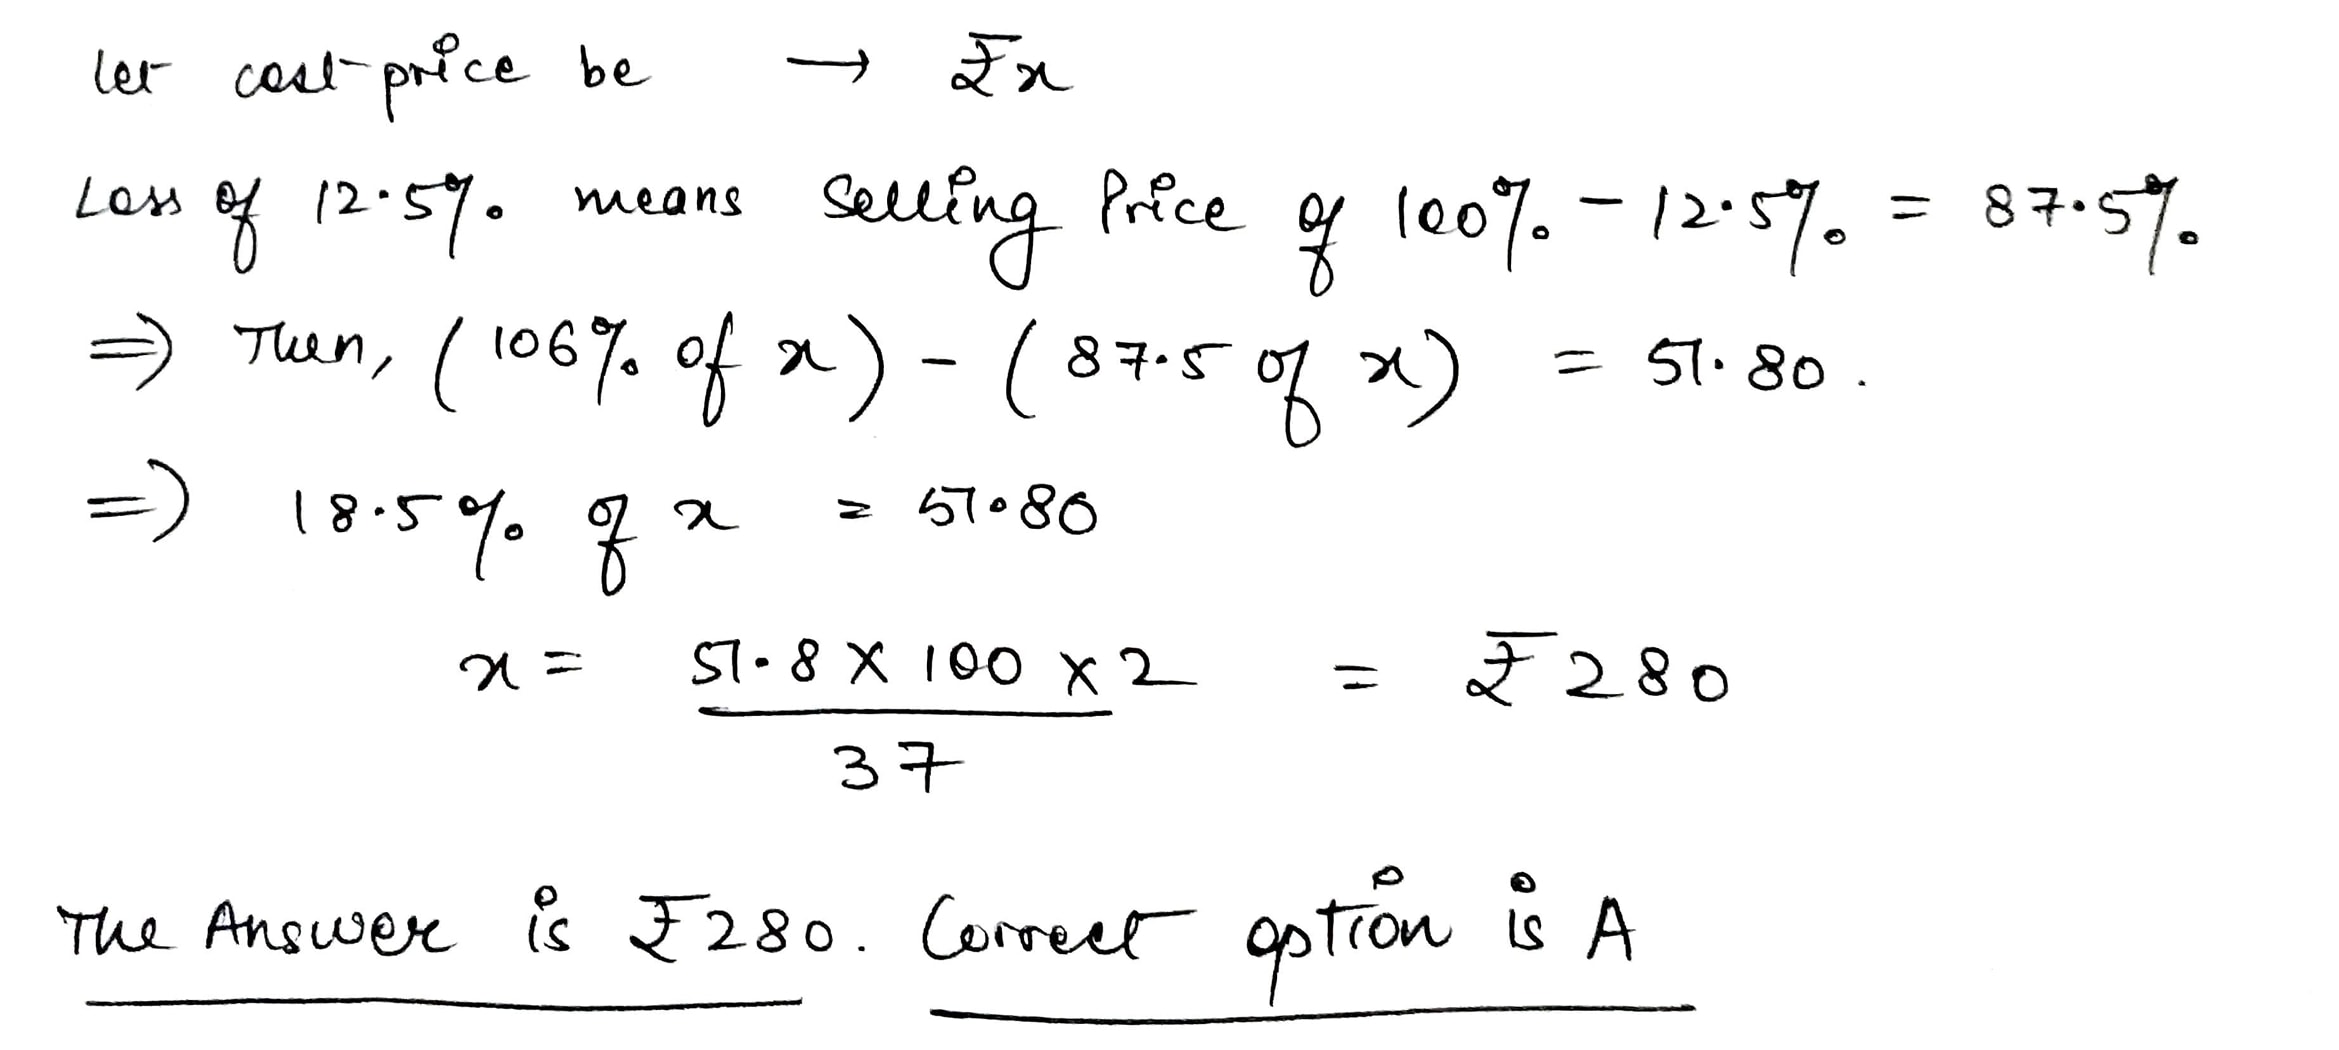 Let cost price be → ₹x
Loss of 12.5% means Selling Price of 100% - 12.5% = 87.5%
⇒ Then, (106% of x) - (87.5 of x) = 51.80.
⇒ 18.5% of x = 51.80
x = 51.8 × 100 × 2 = ₹280
37
The Answer is ₹280. Correct option is A